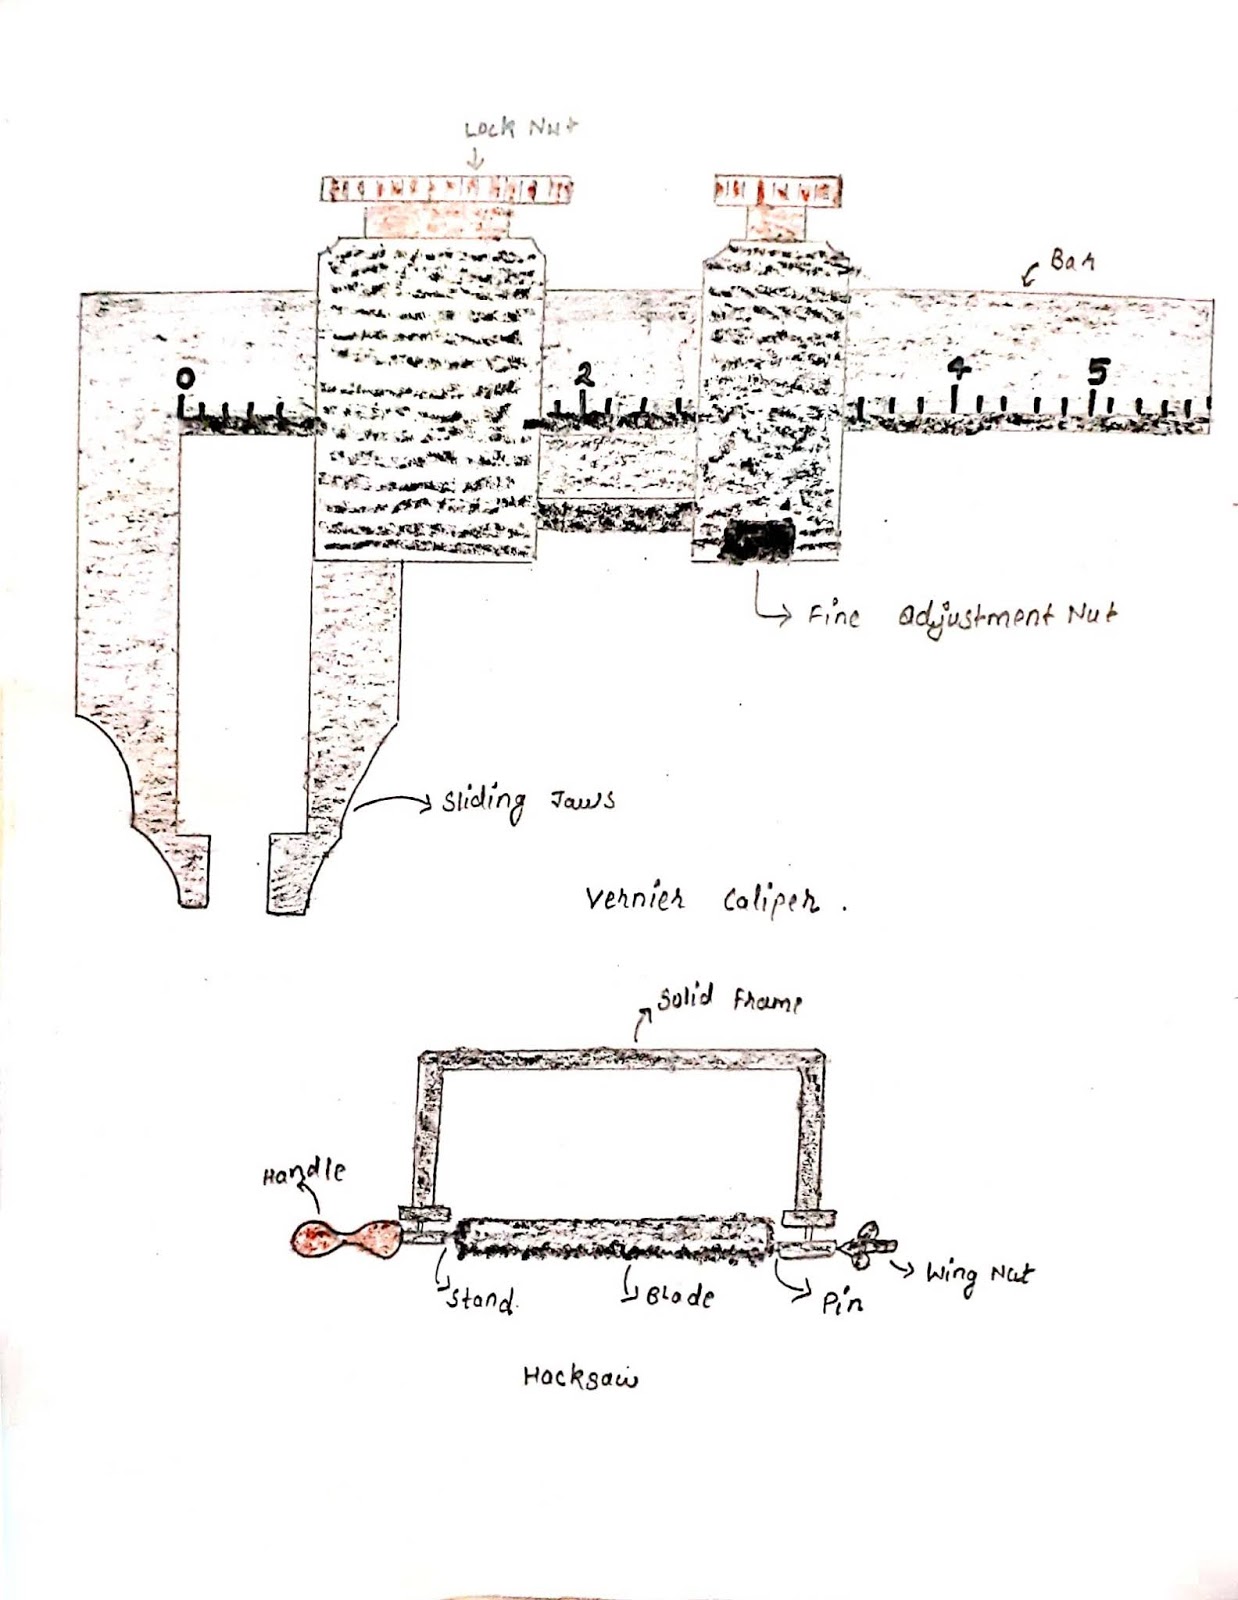 Lock Nut
Bar
0
2
4
5
Fine adjustment Nut
Sliding Jaws
Vernier Caliper.
Solid Frame
Handle
Stand.
Blade
Pin
Wing Nut
Hacksaw